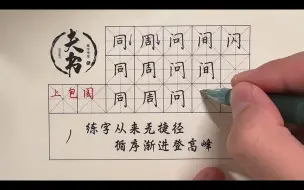 夫书
同周问间闪
同周问间
上包围 同周问
练字从来无捷径
循序渐进登高峰